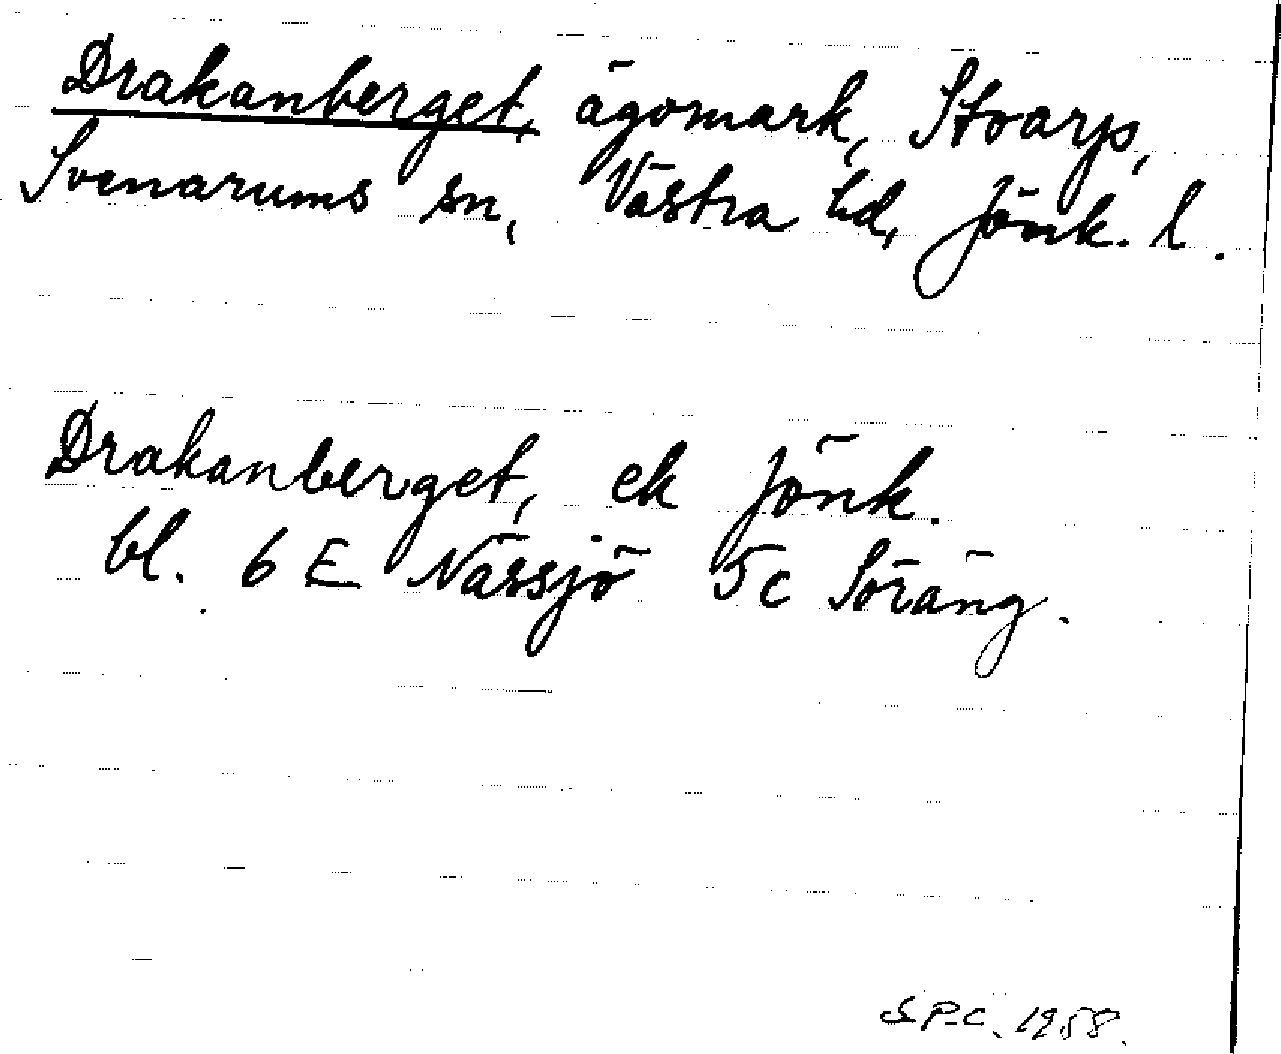 Drakanberget, ägomark, Stvarp,
Svenarums sn, Västra hd, Jönk. l.
Drakanberget, ek Jönk.
bl. 6 E Nässjö 5c Söräng.
S.P.C. 1958.